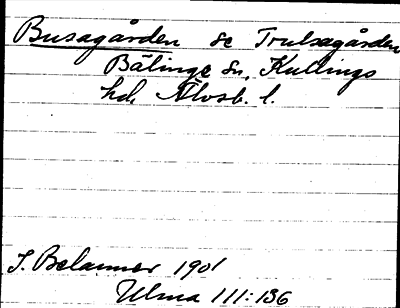 Busagården se Trulsagården
Bälinge sn, Kullings
hd, Älvsb. l.
S. Belanner 1901
Ulma 111:136